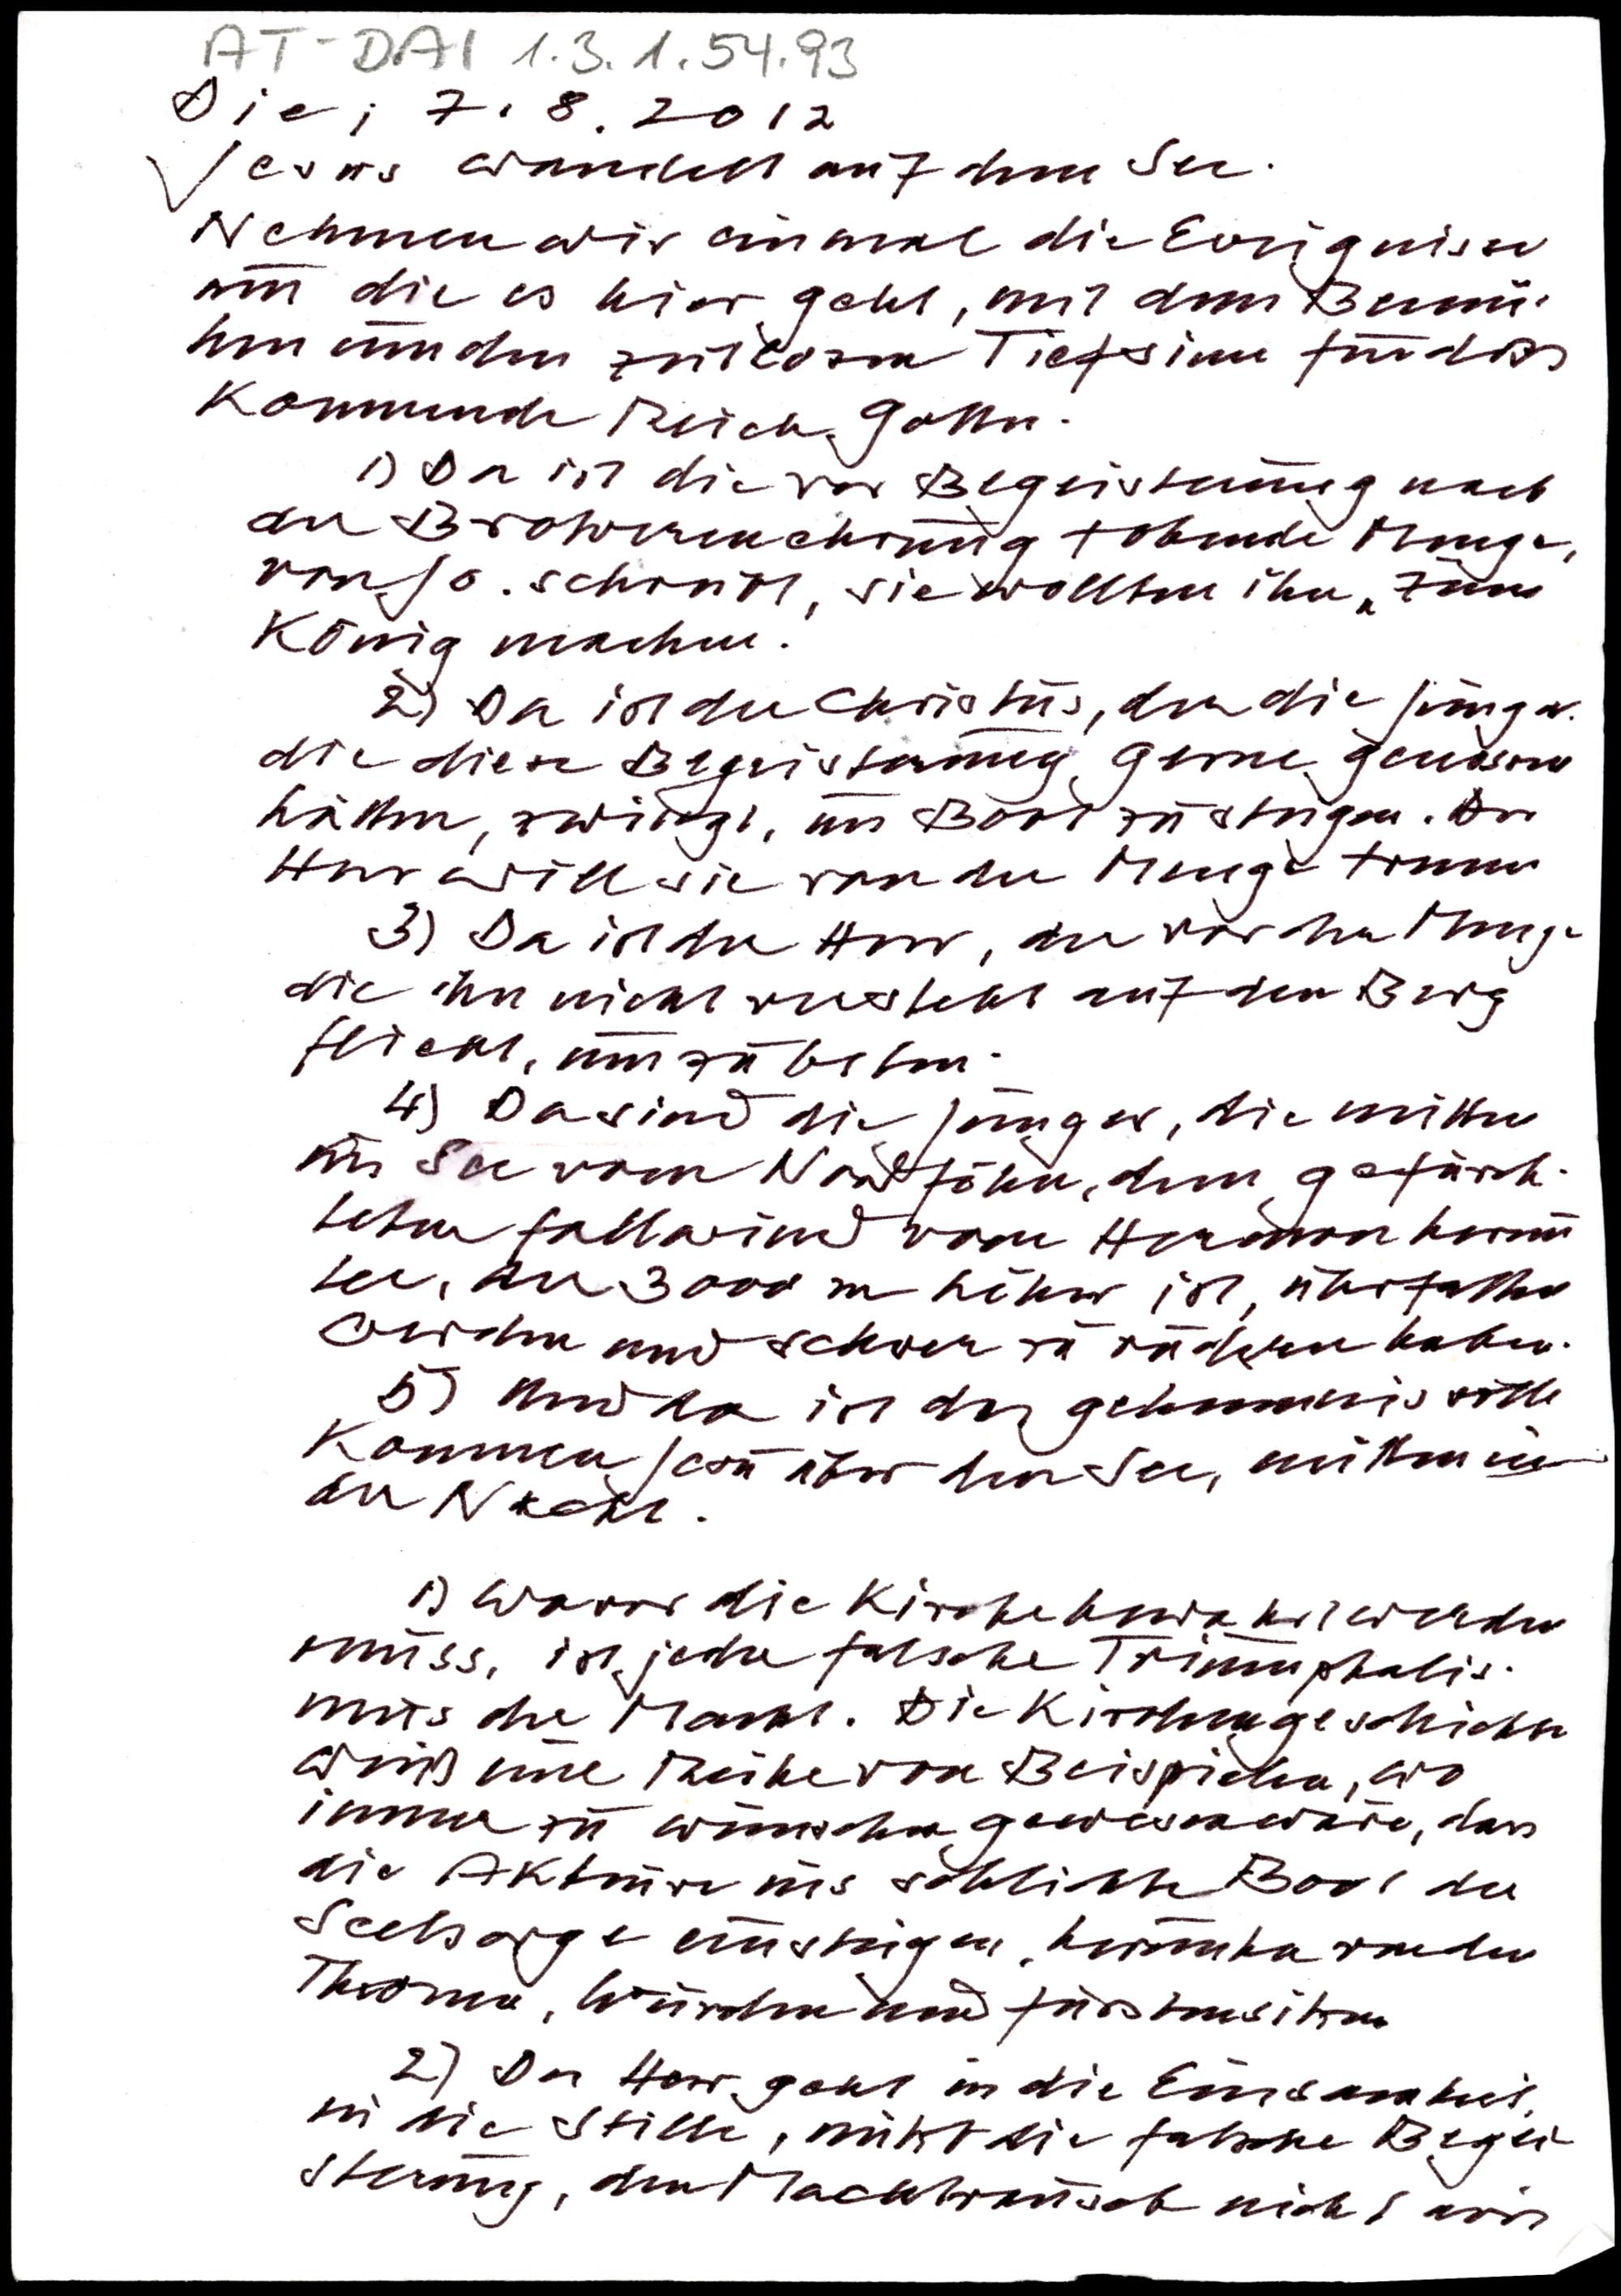 AT-DAI 1.3.1.54.93
Die, 7.8.2012
Jesus wandelt auf dem See.
Nehmen wir einmal die Ereignisse
um die es hier geht, mit dem Bemü-
hen um den zeitlosen Tiefsinn für das
Kommende Reich Gottes.
1) Da ist die vor Begeisterung nach
der Brotvermehrung tobende Menge,
von Jo. schreibt, sie wollten ihn „zum
König machen."
2) Da ist der Christus, der die Jünger,
die diese Begeisterung gerne genossen
hätten, zwingt, ins Boot zu steigen. Der
Herr will sie von der Menge trennen
3) Da ist der Herr, der vor der Menge
die ihn nicht versteht auf den Berg
flieht, um zu beten.
4) Da sind die Jünger, die mitten
im See vom Nordföhn, dem gefürch-
teten Fallwind vom Hermon herun
ter, der 3000 m höher ist, überfallen
werden und schwer zu rudern haben.
5) Und da ist das geheimnisvolle
Kommen Jesu über den See, mitten in
der Nacht.
1) Wovor die Kirche bewahrt werden
muss, ist jeder falsche Triumphalis-
mus der Macht. Die Kirchengeschichte
weiß eine Reihe von Beispielen, wo
immer zu wünschen gewesen wäre, dass
die Akteure ins schlichte Boot der
Seelsorge einsteigen, herunter von den
Thronen, Würden und Fürstensitzen
2) Der Herr geht in die Einsamkeit,
in die Stille, nützt die falsche Begei
sterung, den Machtrausch nicht aus